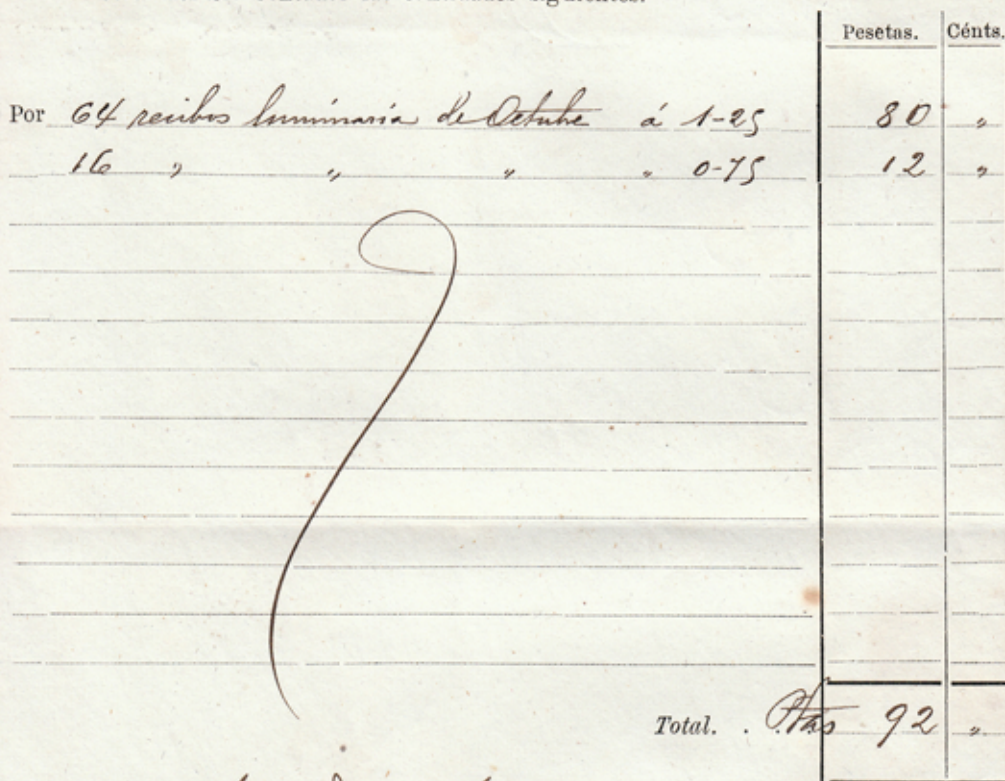 siguientes.
Pesetas. Cénts.
Por 64 recibos luminaria de Octubre á 1-25 80 "
16 " " " " 0-75 12 "
Total. . Ptas 92 "